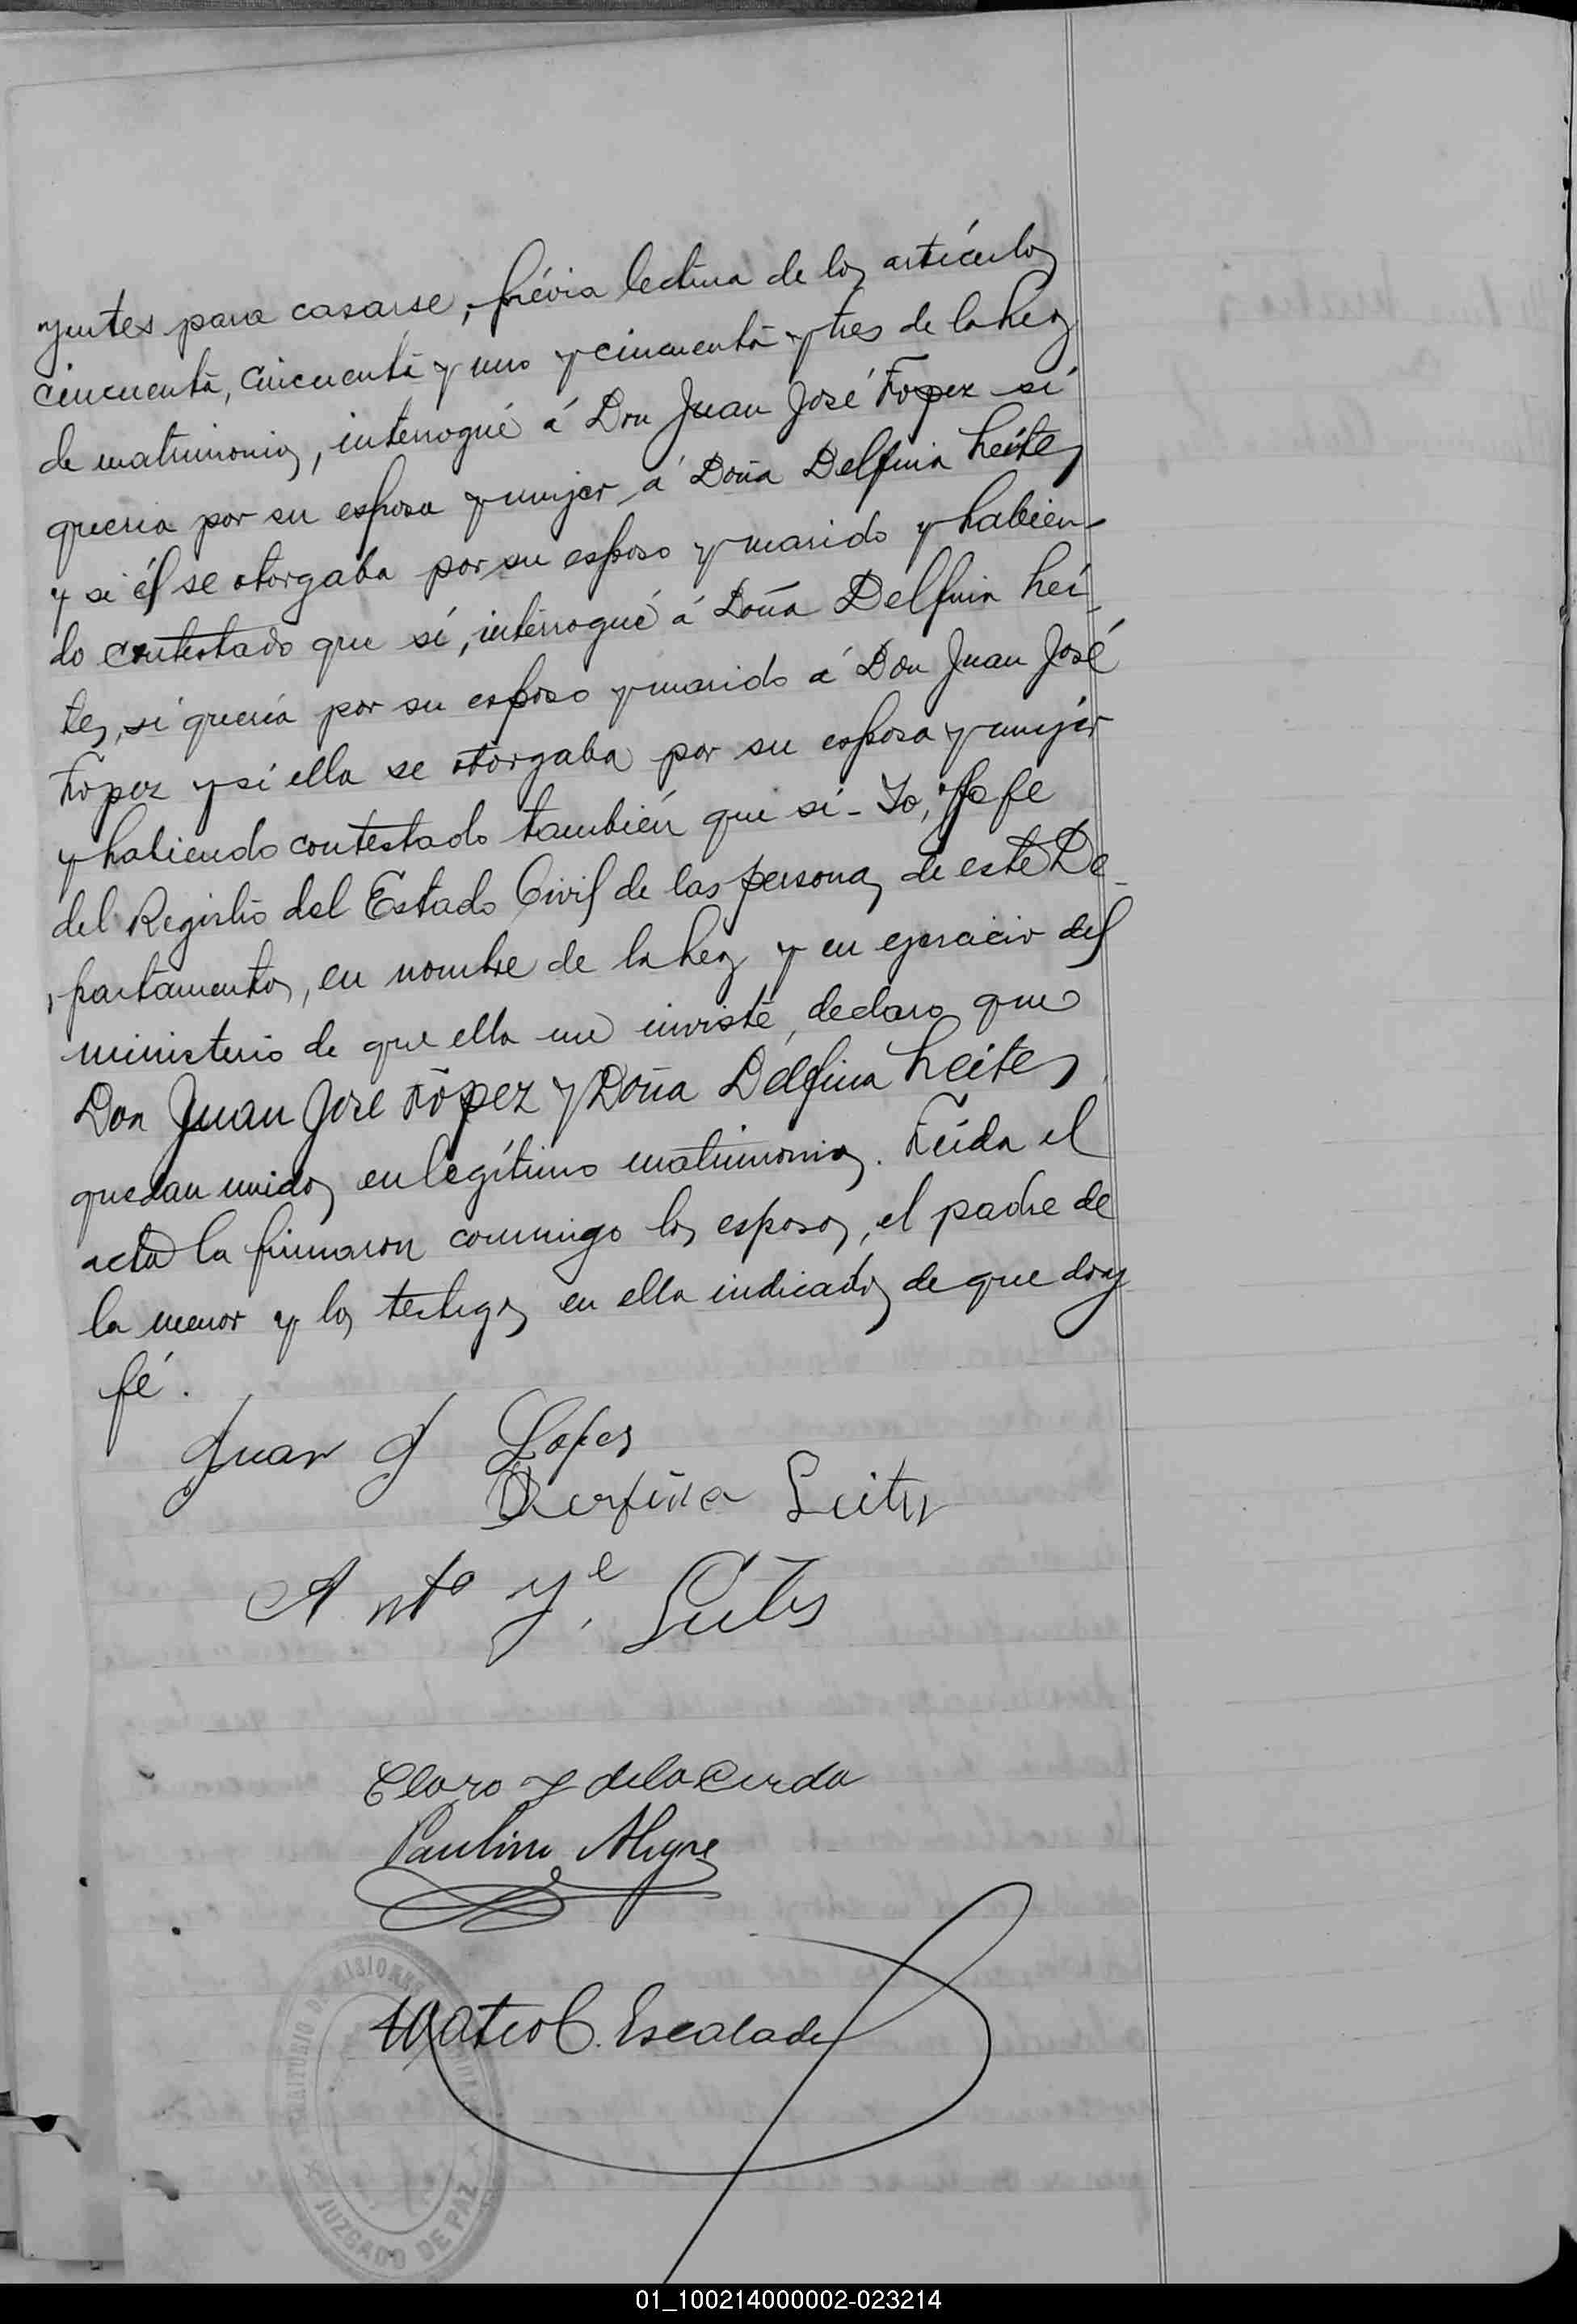 yentes para casarse, prévia lectura de los artículos
cincuenta, cincuenta y uno y cincuenta y tres de la Ley
de matrimonio, interrogué á Don Juan José Lopez si
queria por su esposa y mujer á Doña Delfina Leites
y si él se otorgaba por su esposo y marido y habien-
do contestado que sí, interrogué á Doña Delfina Lei-
tes, si quería por su esposo y marido á Don Juan José
Lopez y si ella se otorgaba por su esposa y mujer
y habiendo contestado también que si - Yo, Jefe
del Registro del Estado Civil de las personas de este De-
partamento, en nombre de la Ley y en ejercicio del
ministerio de que ella me inviste, declaro que
Don Juan José López y Doña Delfina Leites
quedan unidos en legítimo matrimonio. Leida el
acta la firmaron conmigo los esposos, el padre de
la menor y los testigos en ella indicados de que doy
fé.
Juan J Lopes
Derfina Leites
Anto Je. Leites
Claro y dela Cerda
Paulino Alegre
Mateo C. Escalada
TERRITORIO DE MISIONES
JUZGADO DE PAZ
01_100214000002-023214